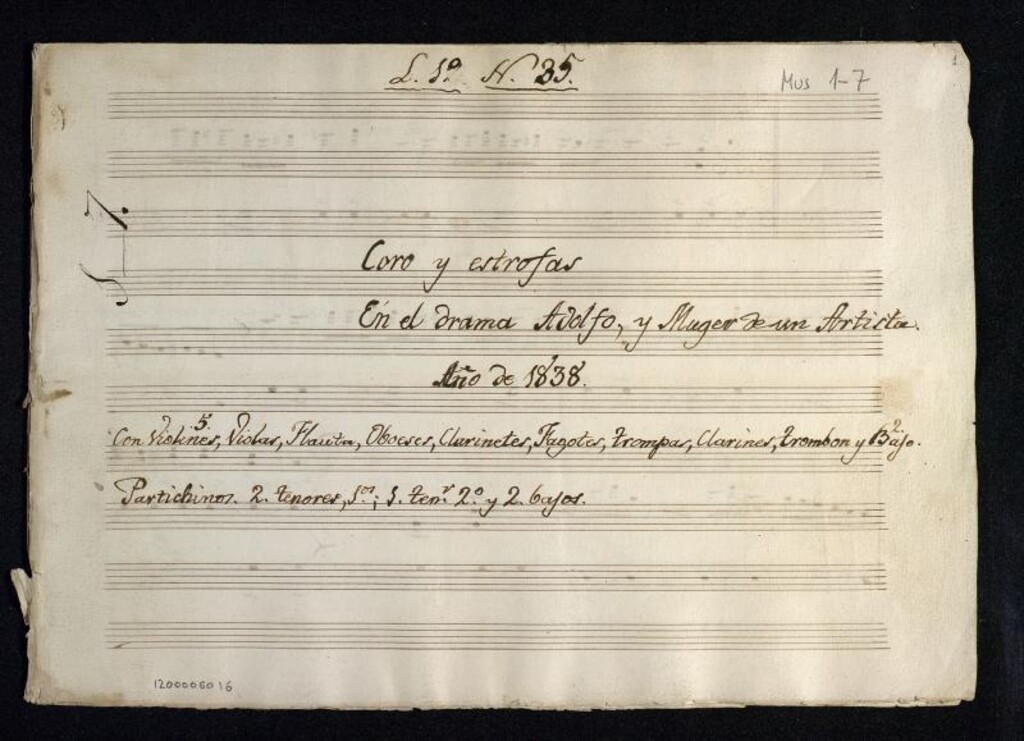 L. 1º N. 35.
Mus 1-7
1
1-7.
Coro y estrofas
En el drama Adolfo, y Muger de un Artista.
Año de 1838.
Con violines, 5 Violas, Flauta, Oboeses, Clarinetes, Fagotes, trompas, Clarines, trombon y Bajo. 2
Partichinos. 2. tenores, 1.os; 1. ten.r 2.º y 2. bajos.
1200006016